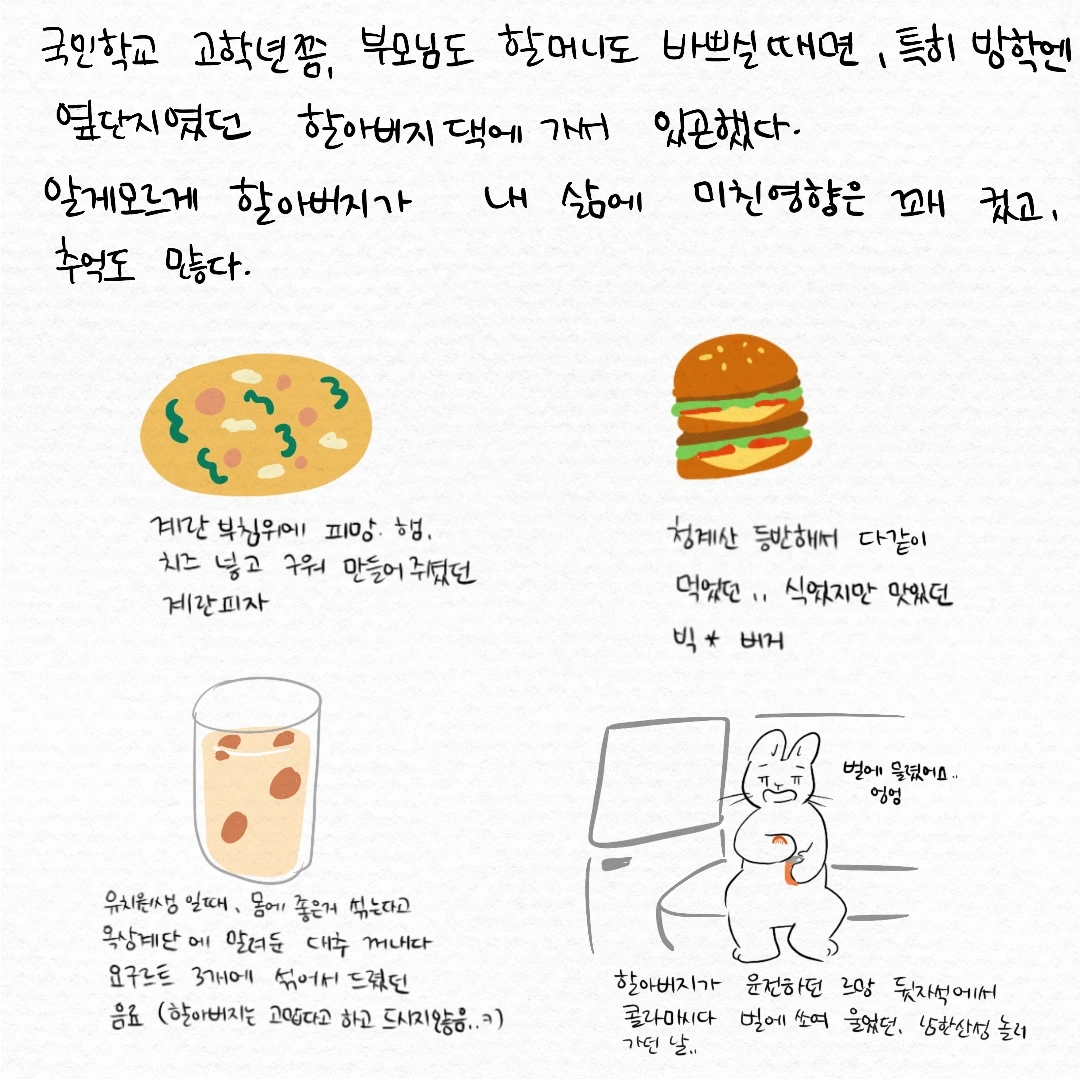 국민학교 고학년쯤, 부모님도 할머니도 바쁘실때면, 특히 방학엔
옆단지였던 할아버지댁에 가서 있곤했다.
알게모르게 할아버지가 내 삶에 미친영향은 꽤 컸고,
추억도 많다.
계란 부침위에 피망. 햄.
치즈 넣고 구워 만들어주셨던
계란피자
청계산 등반해서 다같이
먹었던.. 식었지만 맛있던
빅* 버거
유치원생 일때, 몸에 좋은거 섞는다고
옥상계단에 말려둔 대추 꺼내다
요구르트 3개에 섞어서 드렸던
음료 (할아버지는 고맙다고 하고 드시지않음..ㅋ)
벌에 물렸어요..
엉엉
할아버지가 운전하던 르망 뒷자석에서
콜라마시다 벌에 쏘여 울었던, 남한산성 놀러
가던 날..